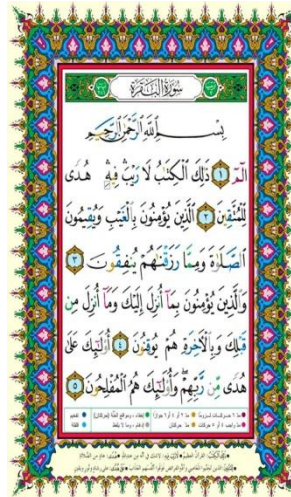 سُورَةُ الْبَقَرَةِ
بِسْمِ اللَّهِ الرَّحْمَٰنِ الرَّحِيمِ
الٓمٓ ١ ذَٰلِكَ الْكِتَٰبُ لَا رَيْبَ فِيهِ هُدًى
لِّلْمُتَّقِينَ ٢ الَّذِينَ يُؤْمِنُونَ بِالْغَيْبِ وَيُقِيمُونَ
الصَّلَوٰةَ وَمِمَّا رَزَقْنَٰهُمْ يُنفِقُونَ ٣
وَالَّذِينَ يُؤْمِنُونَ بِمَا أُنزِلَ إِلَيْكَ وَمَا أُنزِلَ مِن
قَبْلِكَ وَبِالْآخِرَةِ هُمْ يُوقِنُونَ ٤ أُولَٰئِكَ عَلَىٰ
هُدًى مِّن رَّبِّهِمْ وَأُولَٰئِكَ هُمُ الْمُفْلِحُونَ ٥